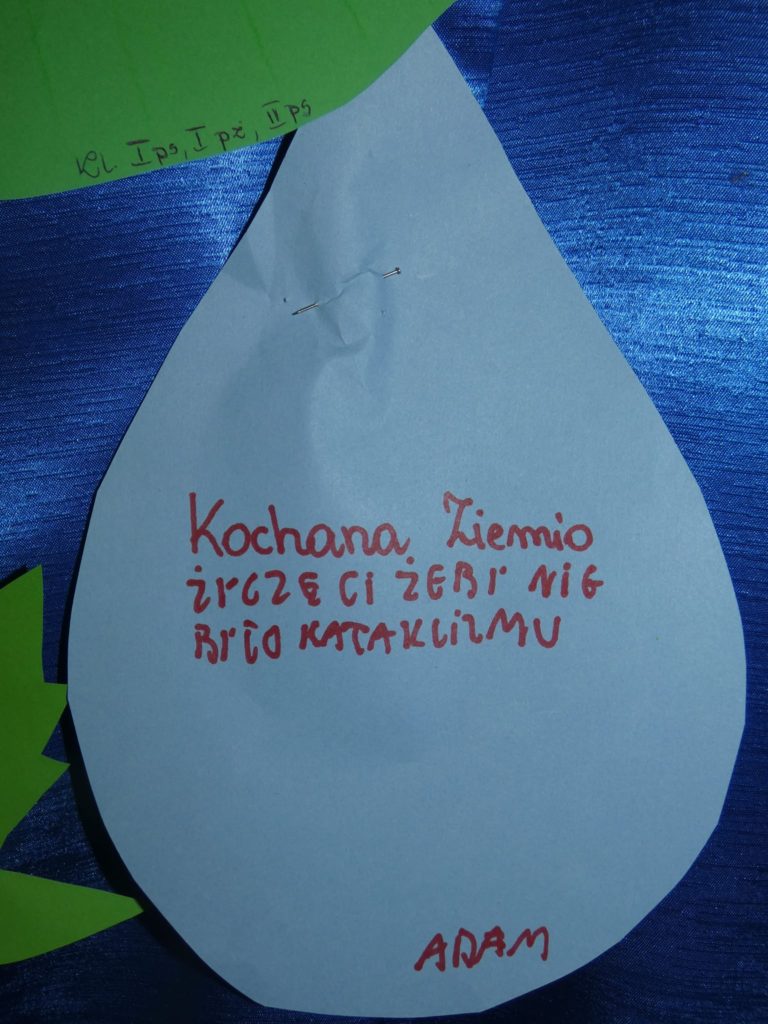 Kl. I ps, I pż, II ps
Kochana Ziemio
ŻYCZĘ CI ŻEBY NIE
BYŁO KATAKLIZMU
ADAM